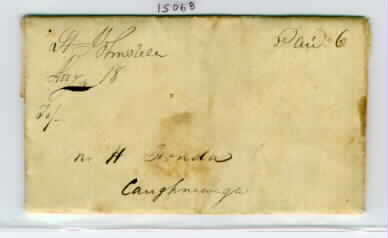 15068
St Johnsville Paid 6
18
H Fonda
Caughnawaga